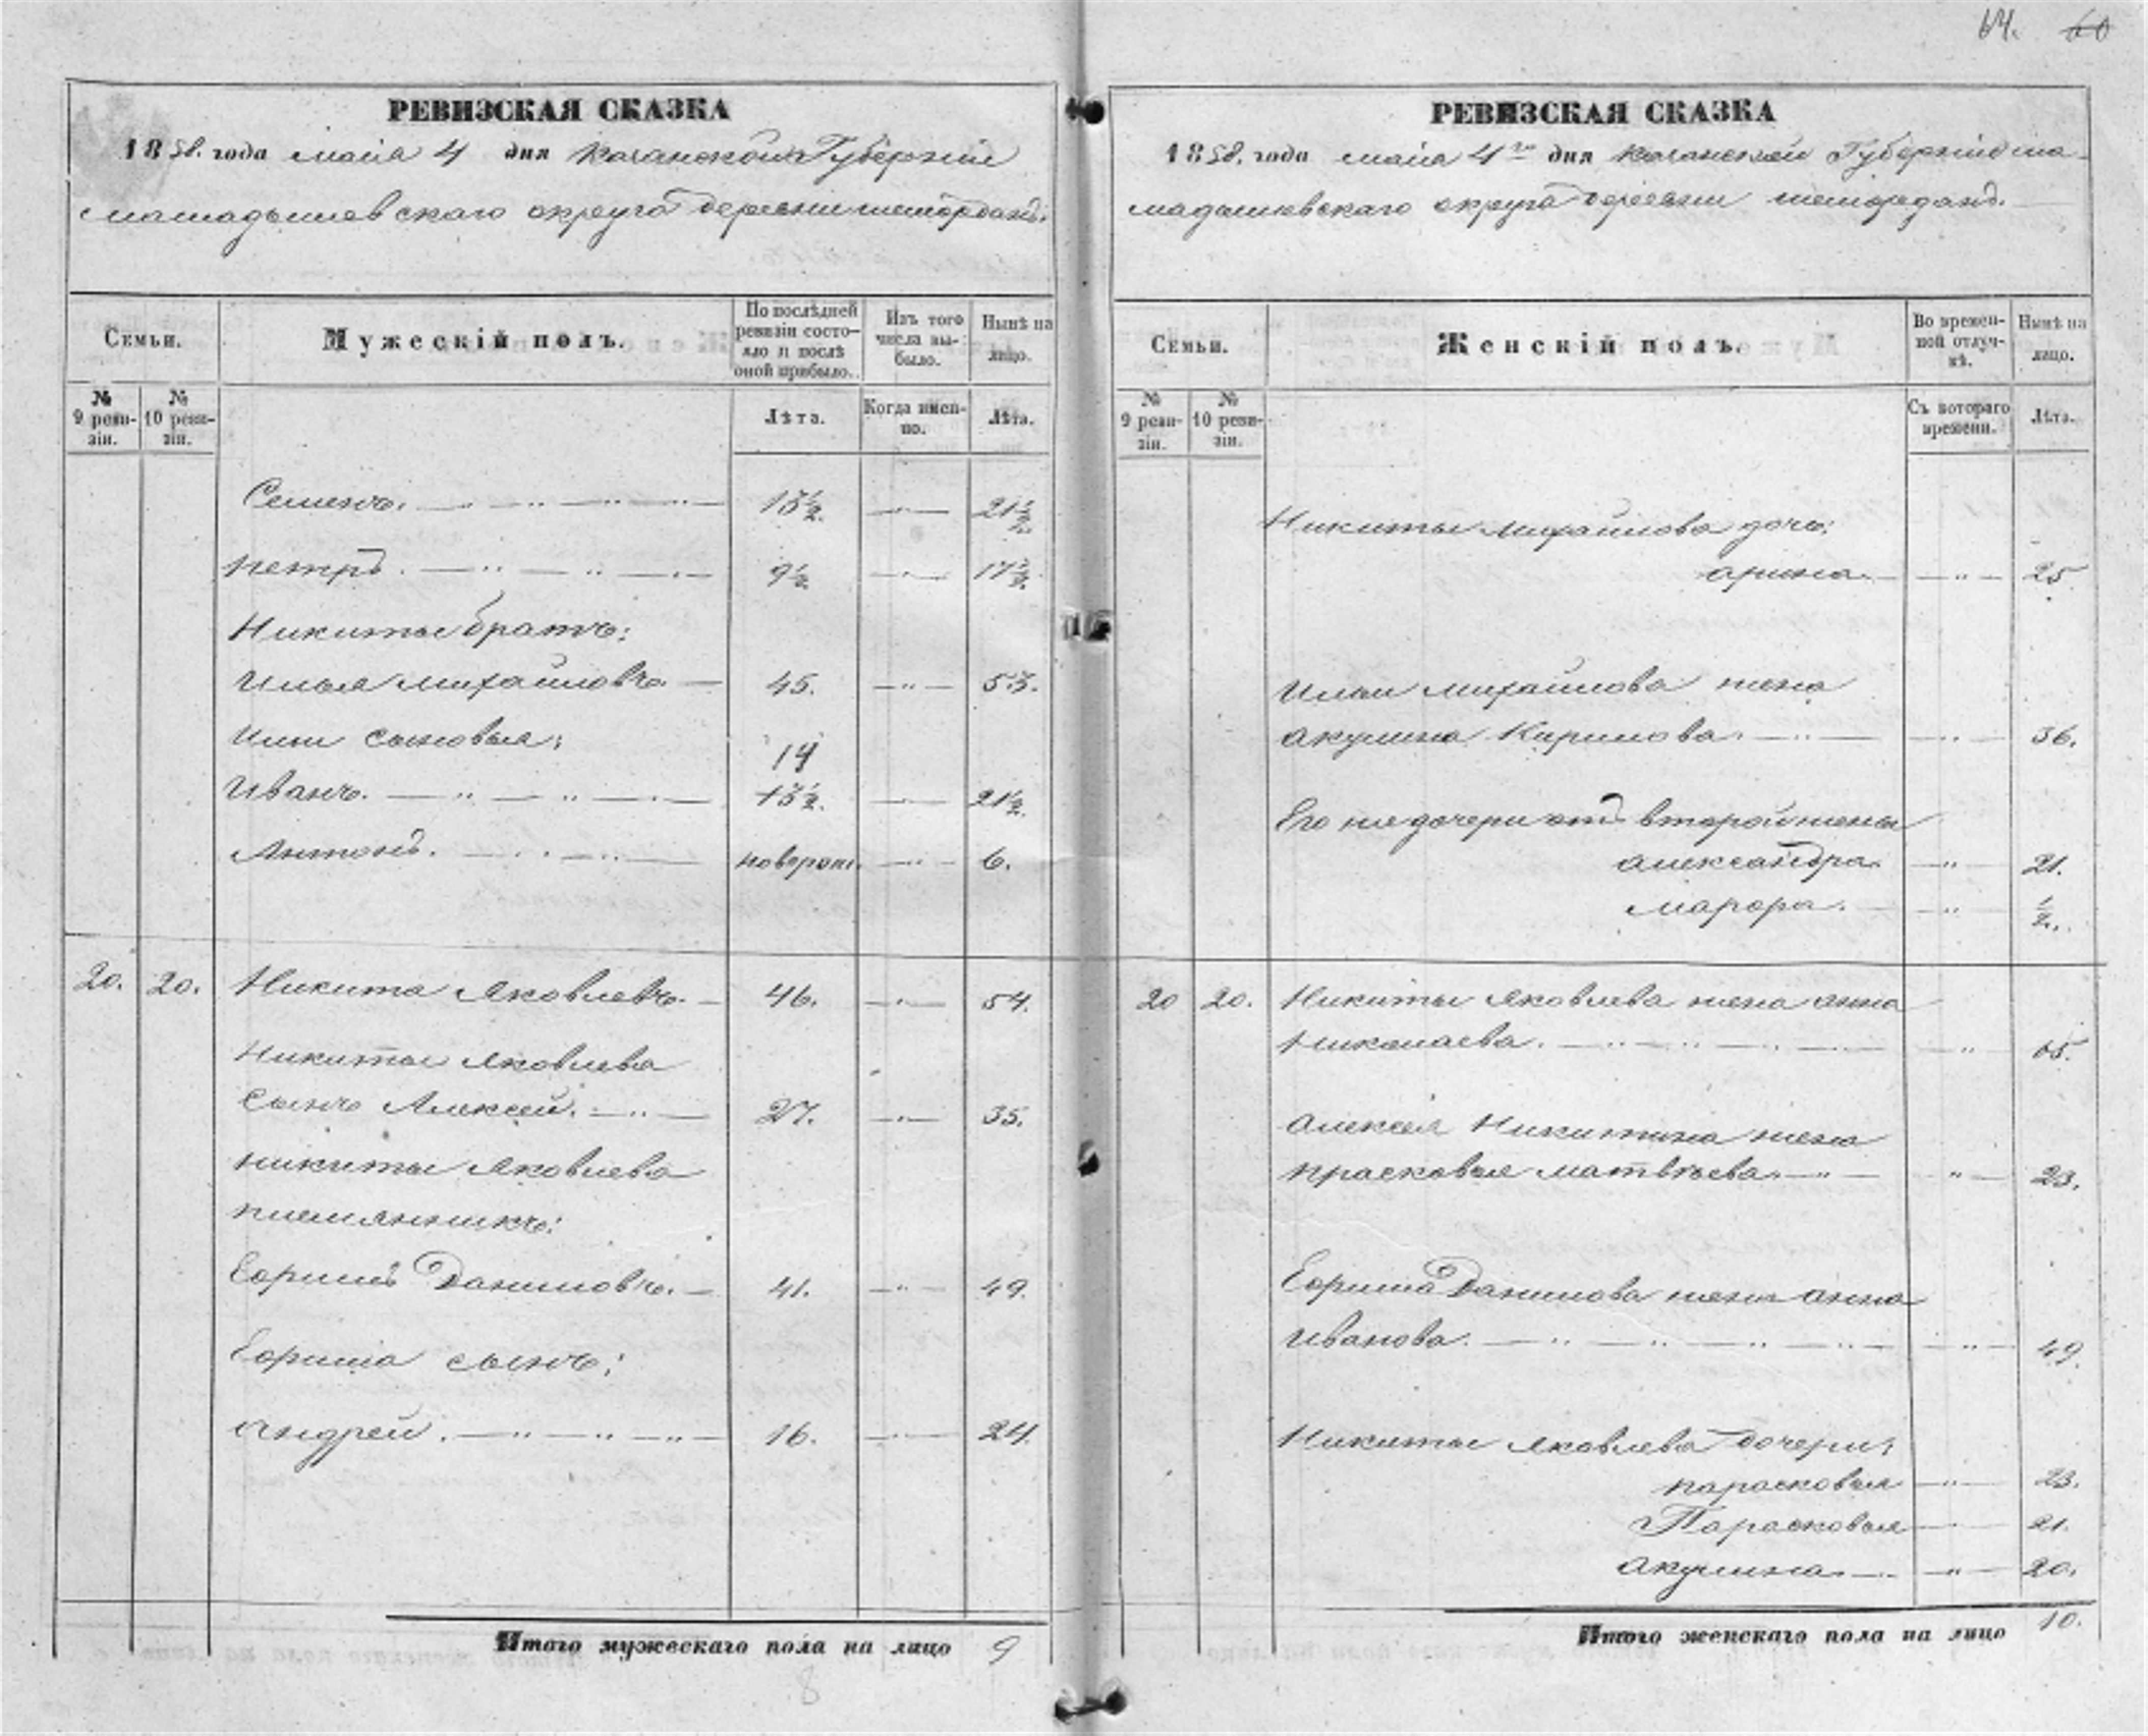 64. 60
РЕВИЗСКАЯ СКАЗКА
1858. года маія 4 дня Казанской Губерніи
мамадышевскаго округа деревни шемордана.
Семьи.
Мужескій полъ.
По послѣдней ревизіи состояло и послѣ оной прибыло.
Изъ того числа выбыло.
Нынѣ на лицо.
№ 9 ревизіи.
№ 10 ревизіи.
Лѣта.
Когда именно.
Лѣта.
Семенъ. 13½. 21½.
петръ. 9½. 17½.
Никиты братъ:
Илья михайловъ. 45. 53.
Ильи сыновья: 14
Иванъ. 13½. 21½.
Антонъ. новорож. 6.
20. 20. Никита Яковлевъ. 46. 54.
Никиты Яковлева
сынъ Алексей. 27. 35.
никиты Яковлева
племянникъ:
Ефримъ Даниловъ. 41. 49.
Ефрима сынъ:
Андрей. 16. 24.
Итого мужескаго пола на лицо 9
8
РЕВИЗСКАЯ СКАЗКА
1858. года маія 4го дня Казанской Губерніи ма-
мадышевскаго округа деревни шемордана.
Семьи.
Женскій полъ.
Во временной отлучкѣ.
Нынѣ на лицо.
№ 9 ревизіи.
№ 10 ревизіи.
Съ котораго времени.
Лѣта.
Никиты Михайлова дочь:
арина. 25
Ильи михайлова жена
акулина Кирилова. 36.
Его же дочери отъ второй жены
александра. 21.
марфра. ½.
20 20. Никиты Яковлева жена анна
Николаева. 65.
Алексея Никитина жена
прасковья матвѣева. 23.
Ефрима Данилова жена анна
Иванова. 49.
Никиты Яковлева дочери:
парасковья 23.
Парасковья 21.
Акулина. 20.
Итого женскаго пола на лицо 10.